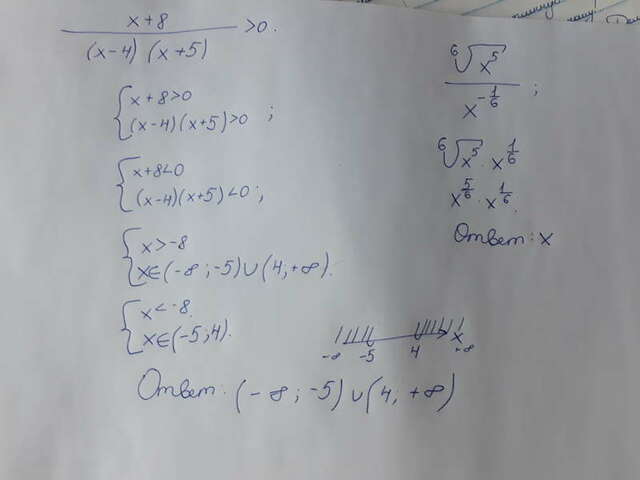 (x+8)/((x-4)(x+5)) >0.
{x+8>0
(x-4)(x+5)>0 ;
{x+8<0
(x-4)(x+5)<0 ;
{x>-8
x∈(-∞;-5)∪(4;+∞).
{x<-8
x∈(-5;4).
-∞ -5 4 x +∞
Ответ: (-8;-5)∪(4;+∞)
⁶√x⁵ / x^(-1/6) ;
⁶√x⁵ · x^(1/6)
x^(5/6) · x^(1/6)
Ответ: x